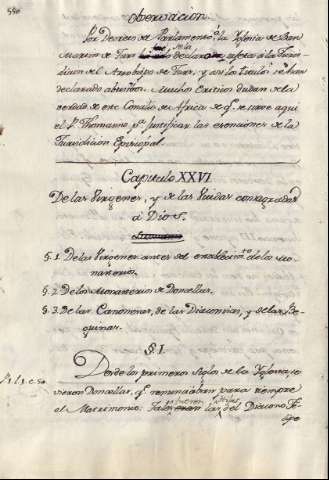 550
Observacion.
Por Decreto de Parlamento la Yglesia de San
Martin de Turs de la declarase, sujeta à la Juris-
diccion del Arzobispo de Turs, y assi los titulos se han
declarado abusibos. Muchos Criticos dudan de la
verdad de este Concilio de Africa de q.e se sirve aqui
el P. Thomasino p.a justificar las exenciones de la
Jurisdicion Episcopal.
Capitulo XXVI.
De las Virgenes, y de las Viudas consagradas
à Dios.
§. 1. De las Virgenes antes del establecim.to de los Mo-
nasterios.
§. 2. De los Monasterios de Doncellas.
§. 3. De las Canonesas, de las Diaconisas, y de las Be-
guinas.
§. I.
Desde los primeros Siglos de la Yglesia, se
vieron Doncellas, q.e renunciaban para siempre
el Matrimonio. Tales fueron las hijas del Diacono Fe-
lipe